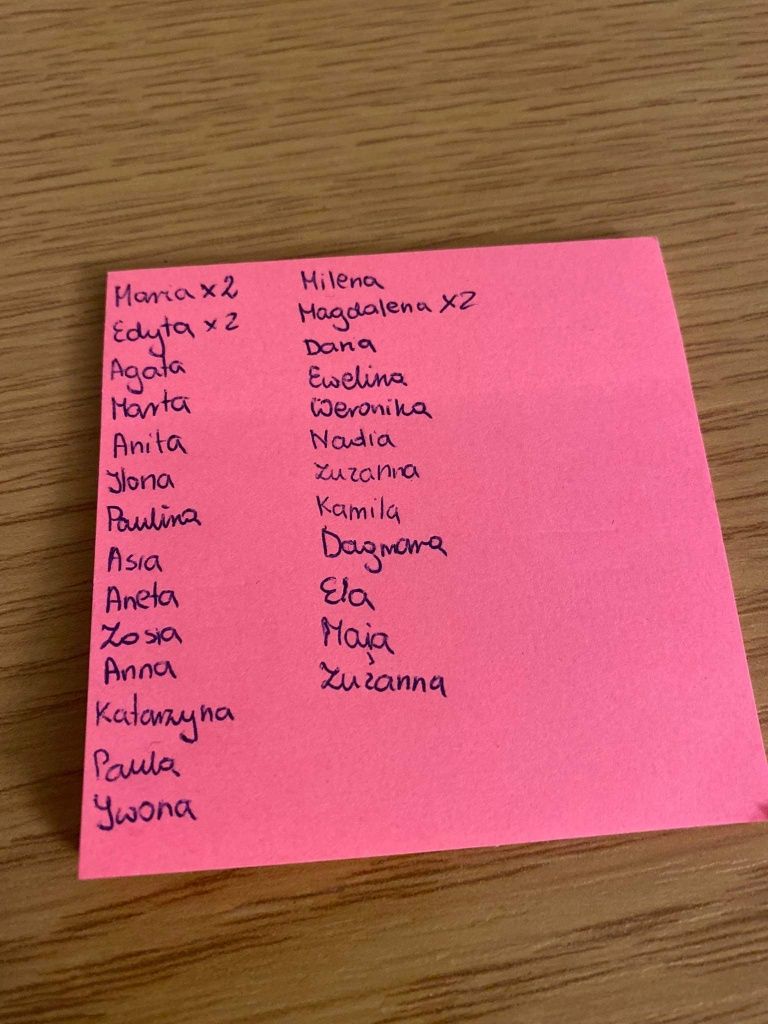 Maria x2
Edyta x2
Agata
Marta
Anita
Ilona
Paulina
Asia
Aneta
Zosia
Anna
Katarzyna
Paula
Iwona
Milena
Magdalena x2
Dana
Ewelina
Weronika
Nadia
Zuzanna
Kamila
Dagmara
Ela
Maja
Zuzanna